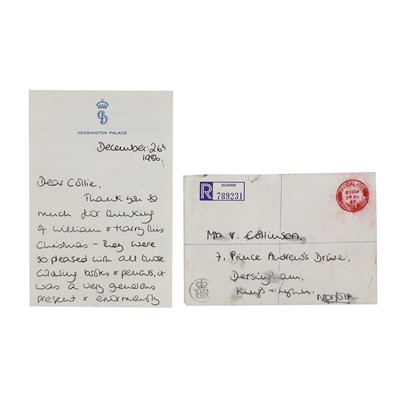 KENSINGTON PALACE
December 26th
1986,
Dear Collie,
Thank you so
much for thinking
of William & Harry this
Christmas – they were
so pleased with all those
colouring books & pencils, it
was a very generous
present & enormously
R
789231
Mr V. Collinson,
7, Prince Andrew's Drive,
Dersingham,
King's Lynn,
Norfolk